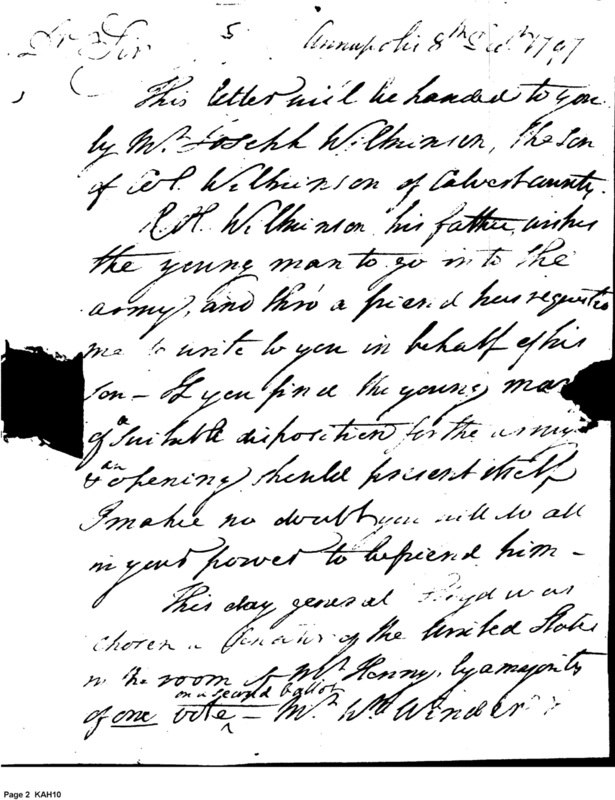 5
Dr Sir
Annapolis 8th Decr 1797
This letter will be handed to you
by Mr Joseph Wilkinson, the Son
of Col. Wilkinson of Calvert County.
Col. Wilkinson his father, wishes
the young man to go into the
army, and thro' a friend has requested
me to write to you in behalf of his
son – If you find the young man
of a suitable disposition for the army
& an opening should present itself
I make no doubt you will do all
in your power to befriend him –
This day general Lloyd was
chosen a Senator of the United States
in the room of Mr Henry, by a majority
on a second ballot
of one vote ^ – Mr Wm Winder
Page 2 KAH10